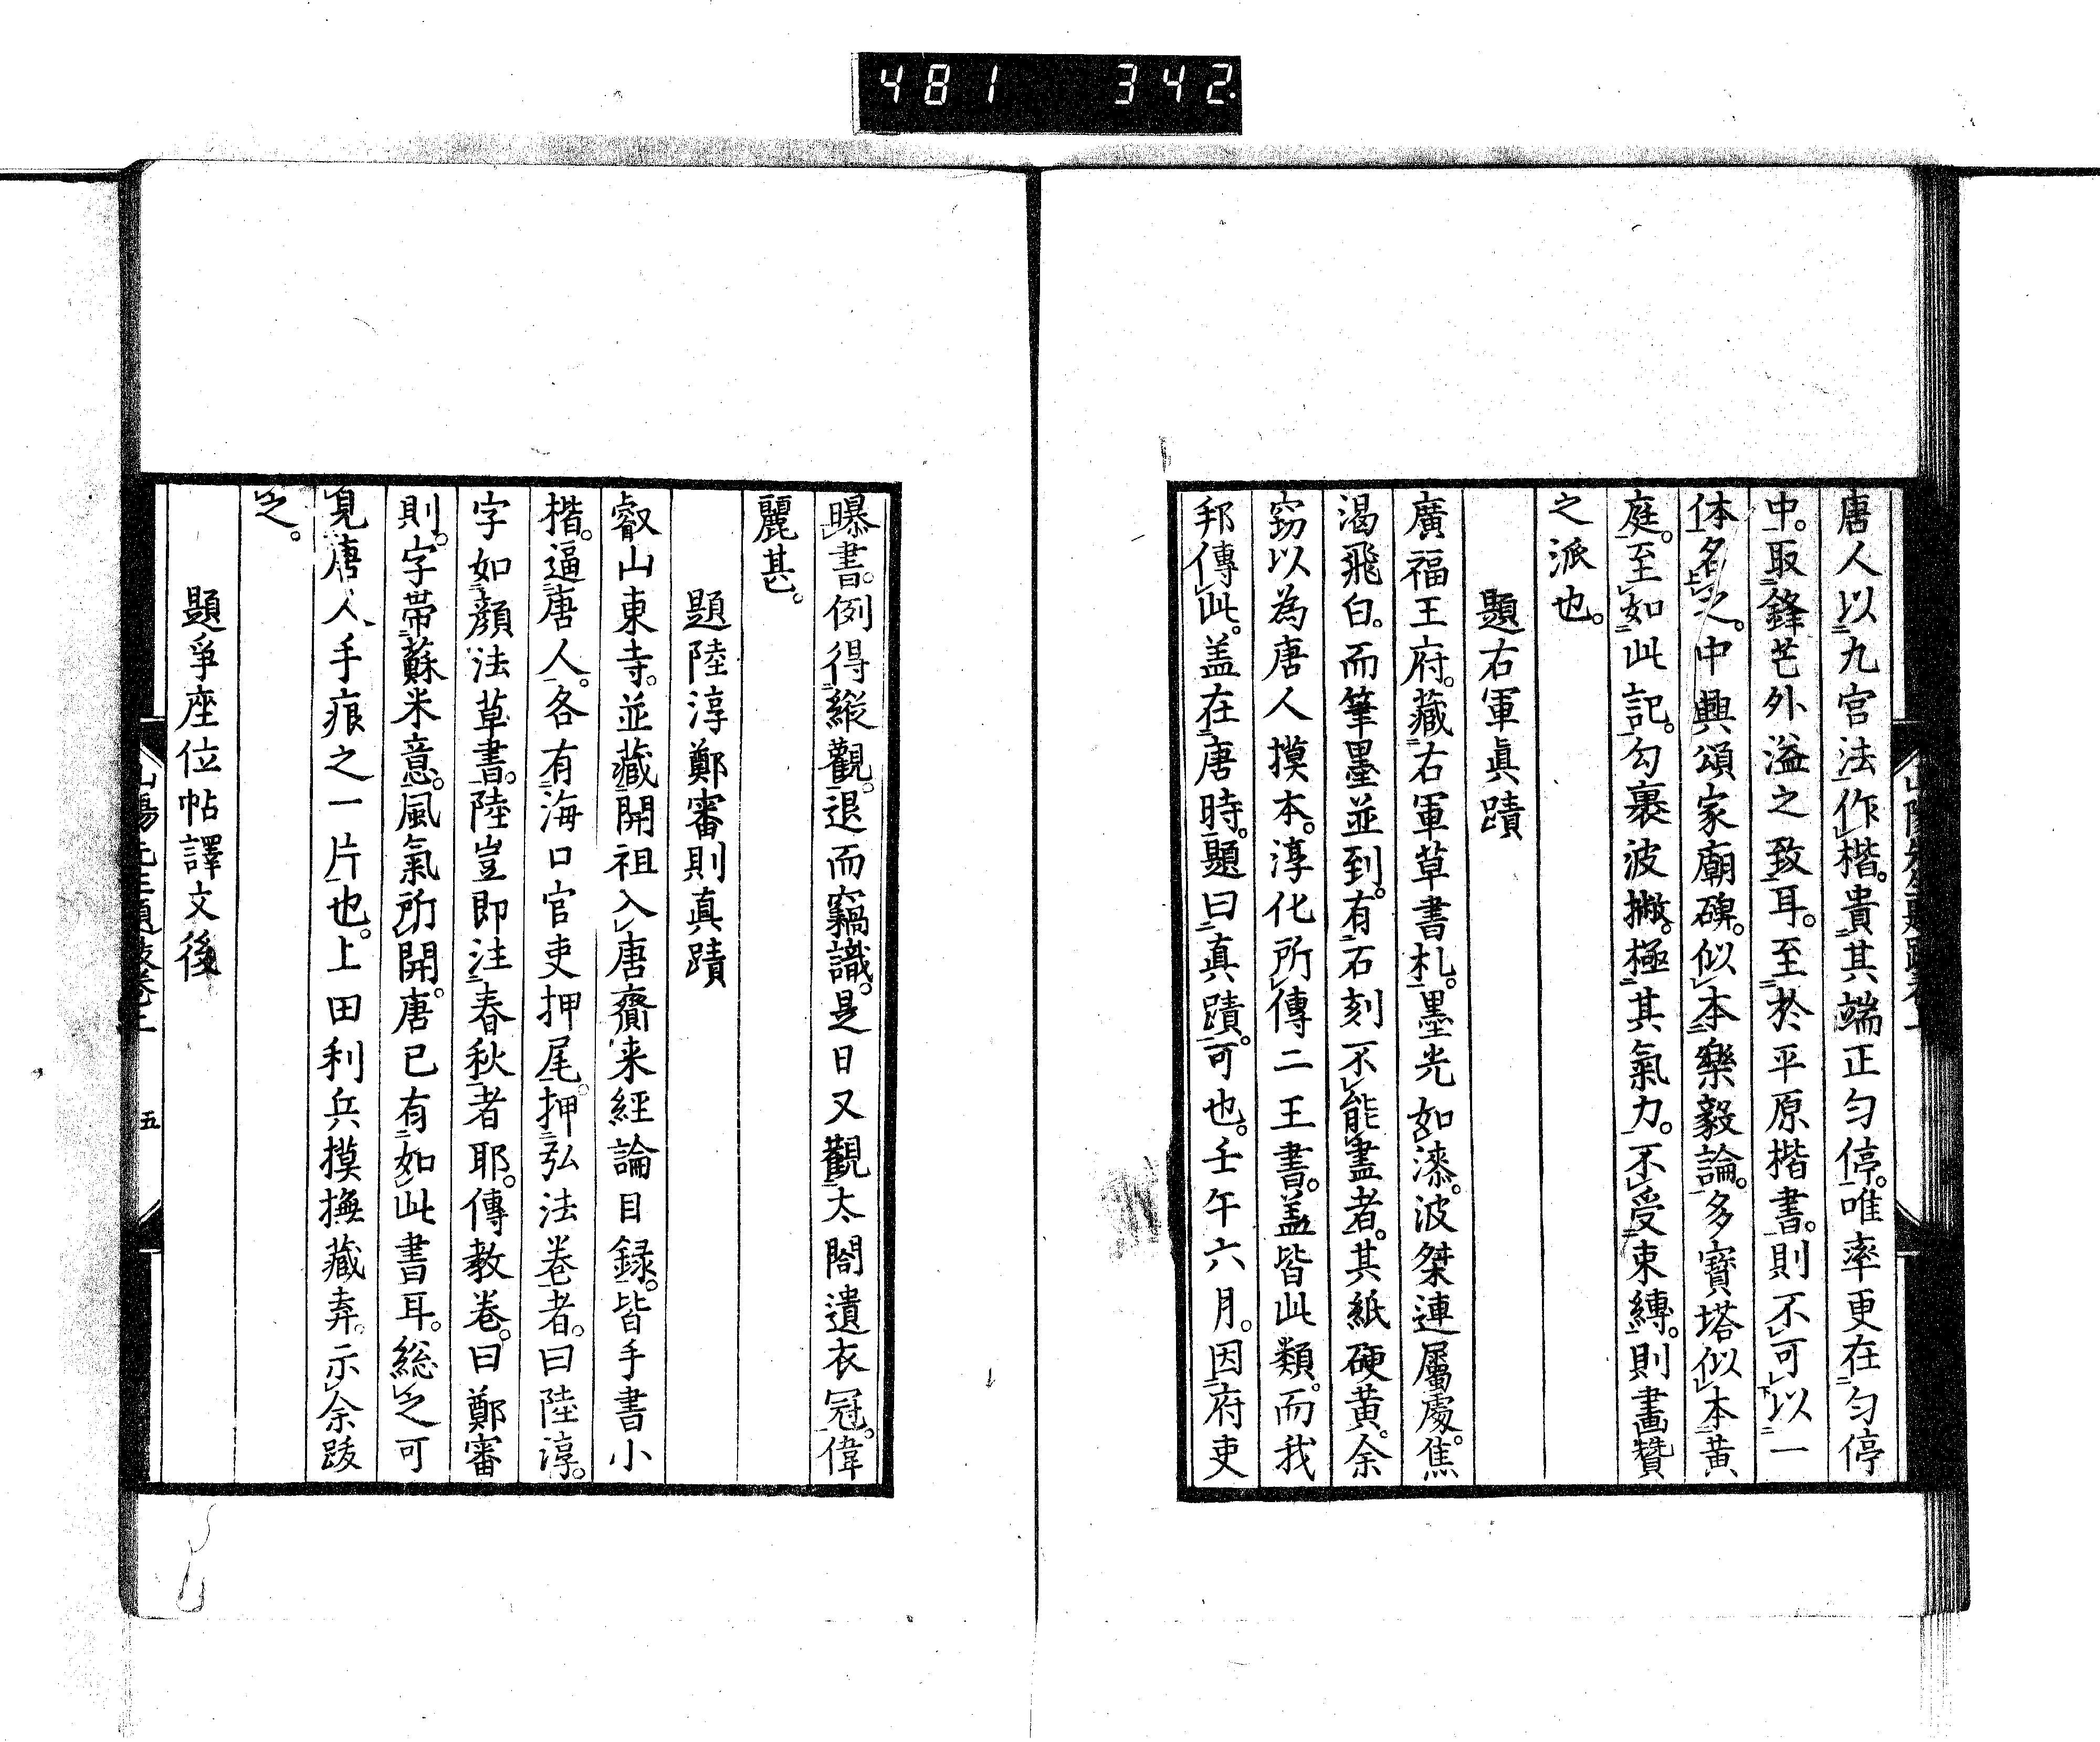 481 342
唐人以九宮法作楷。貴其端正匀停。唯率更在匀停
中。取鋒芒外溢之致耳。至於平原楷書。則不可以一
体名之。中興頌家廟碑。似本樂毅論。多寶塔似本黄
庭。至如此記。勾裹波撇。極其氣力。不受束縛。則畫贊
之派也。
題右軍眞蹟
廣福王府。藏右軍草書札。墨光如漆。波桀連屬處。焦
渴飛白。而筆墨並到。有石刻不能盡者。其紙硬黄。余
窃以為唐人摸本。淳化所傳二王書。盖皆此類。而我
邦傳此。盖在唐時。題曰真蹟。可也。壬午六月。因府吏
曝書。例得縱觀。退而竊識。是日又觀太閤遺衣冠。偉
麗甚。
題陸淳鄭審則真蹟
叡山東寺。並藏開祖入唐齎来經論目録。皆手書小
楷。逼唐人。各有海口官吏押尾。押弘法卷者。曰陸淳。
字如顔法草書。陸豈即注春秋者耶。傳教卷。曰鄭審
則。字帶蘇米意。風氣所開。唐已有如此書耳。総之可
覓唐人手痕之一片也。上田利兵摸撫藏弆。示余跋
之。
題爭座位帖譯文後
五